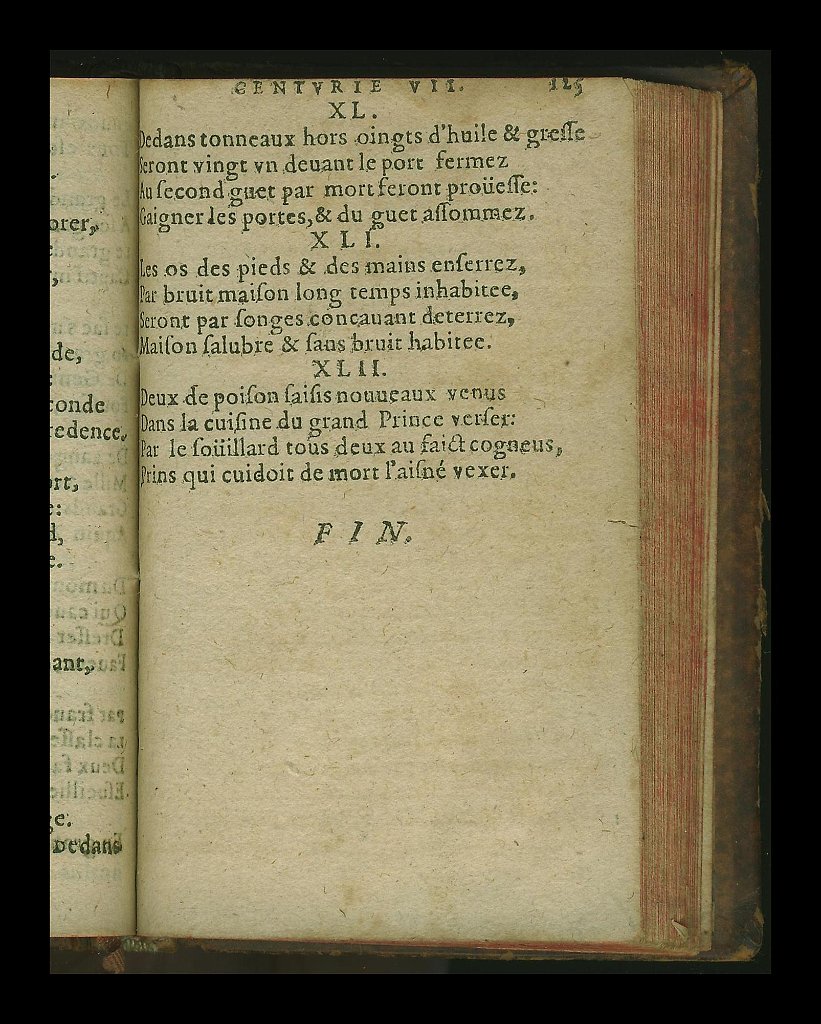 orer,
,
de,
:
conde
redence.
ort,
e:
d,
e.
ant,
ge.
Dedans
CENTVRIE VII. 125
XL.
Dedans tonneaux hors oingts d'huile & greſſe
Seront vingt vn deuant le port fermez
Au ſecond guet par mort feront proüeſſe:
Gaigner les portes, & du guet aſſommez.
XLI.
Les os des pieds & des mains enſerrez,
Par bruit maiſon long temps inhabitee,
Seront par ſonges concauant deterrez,
Maiſon ſalubre & ſans bruit habitee.
XLII.
Deux de poiſon ſaiſis nouueaux venus
Dans la cuiſine du grand Prince verſer:
Par le ſoüillard tous deux au faict cogneus,
Prins qui cuidoit de mort l'aiſné vexer.
FIN.